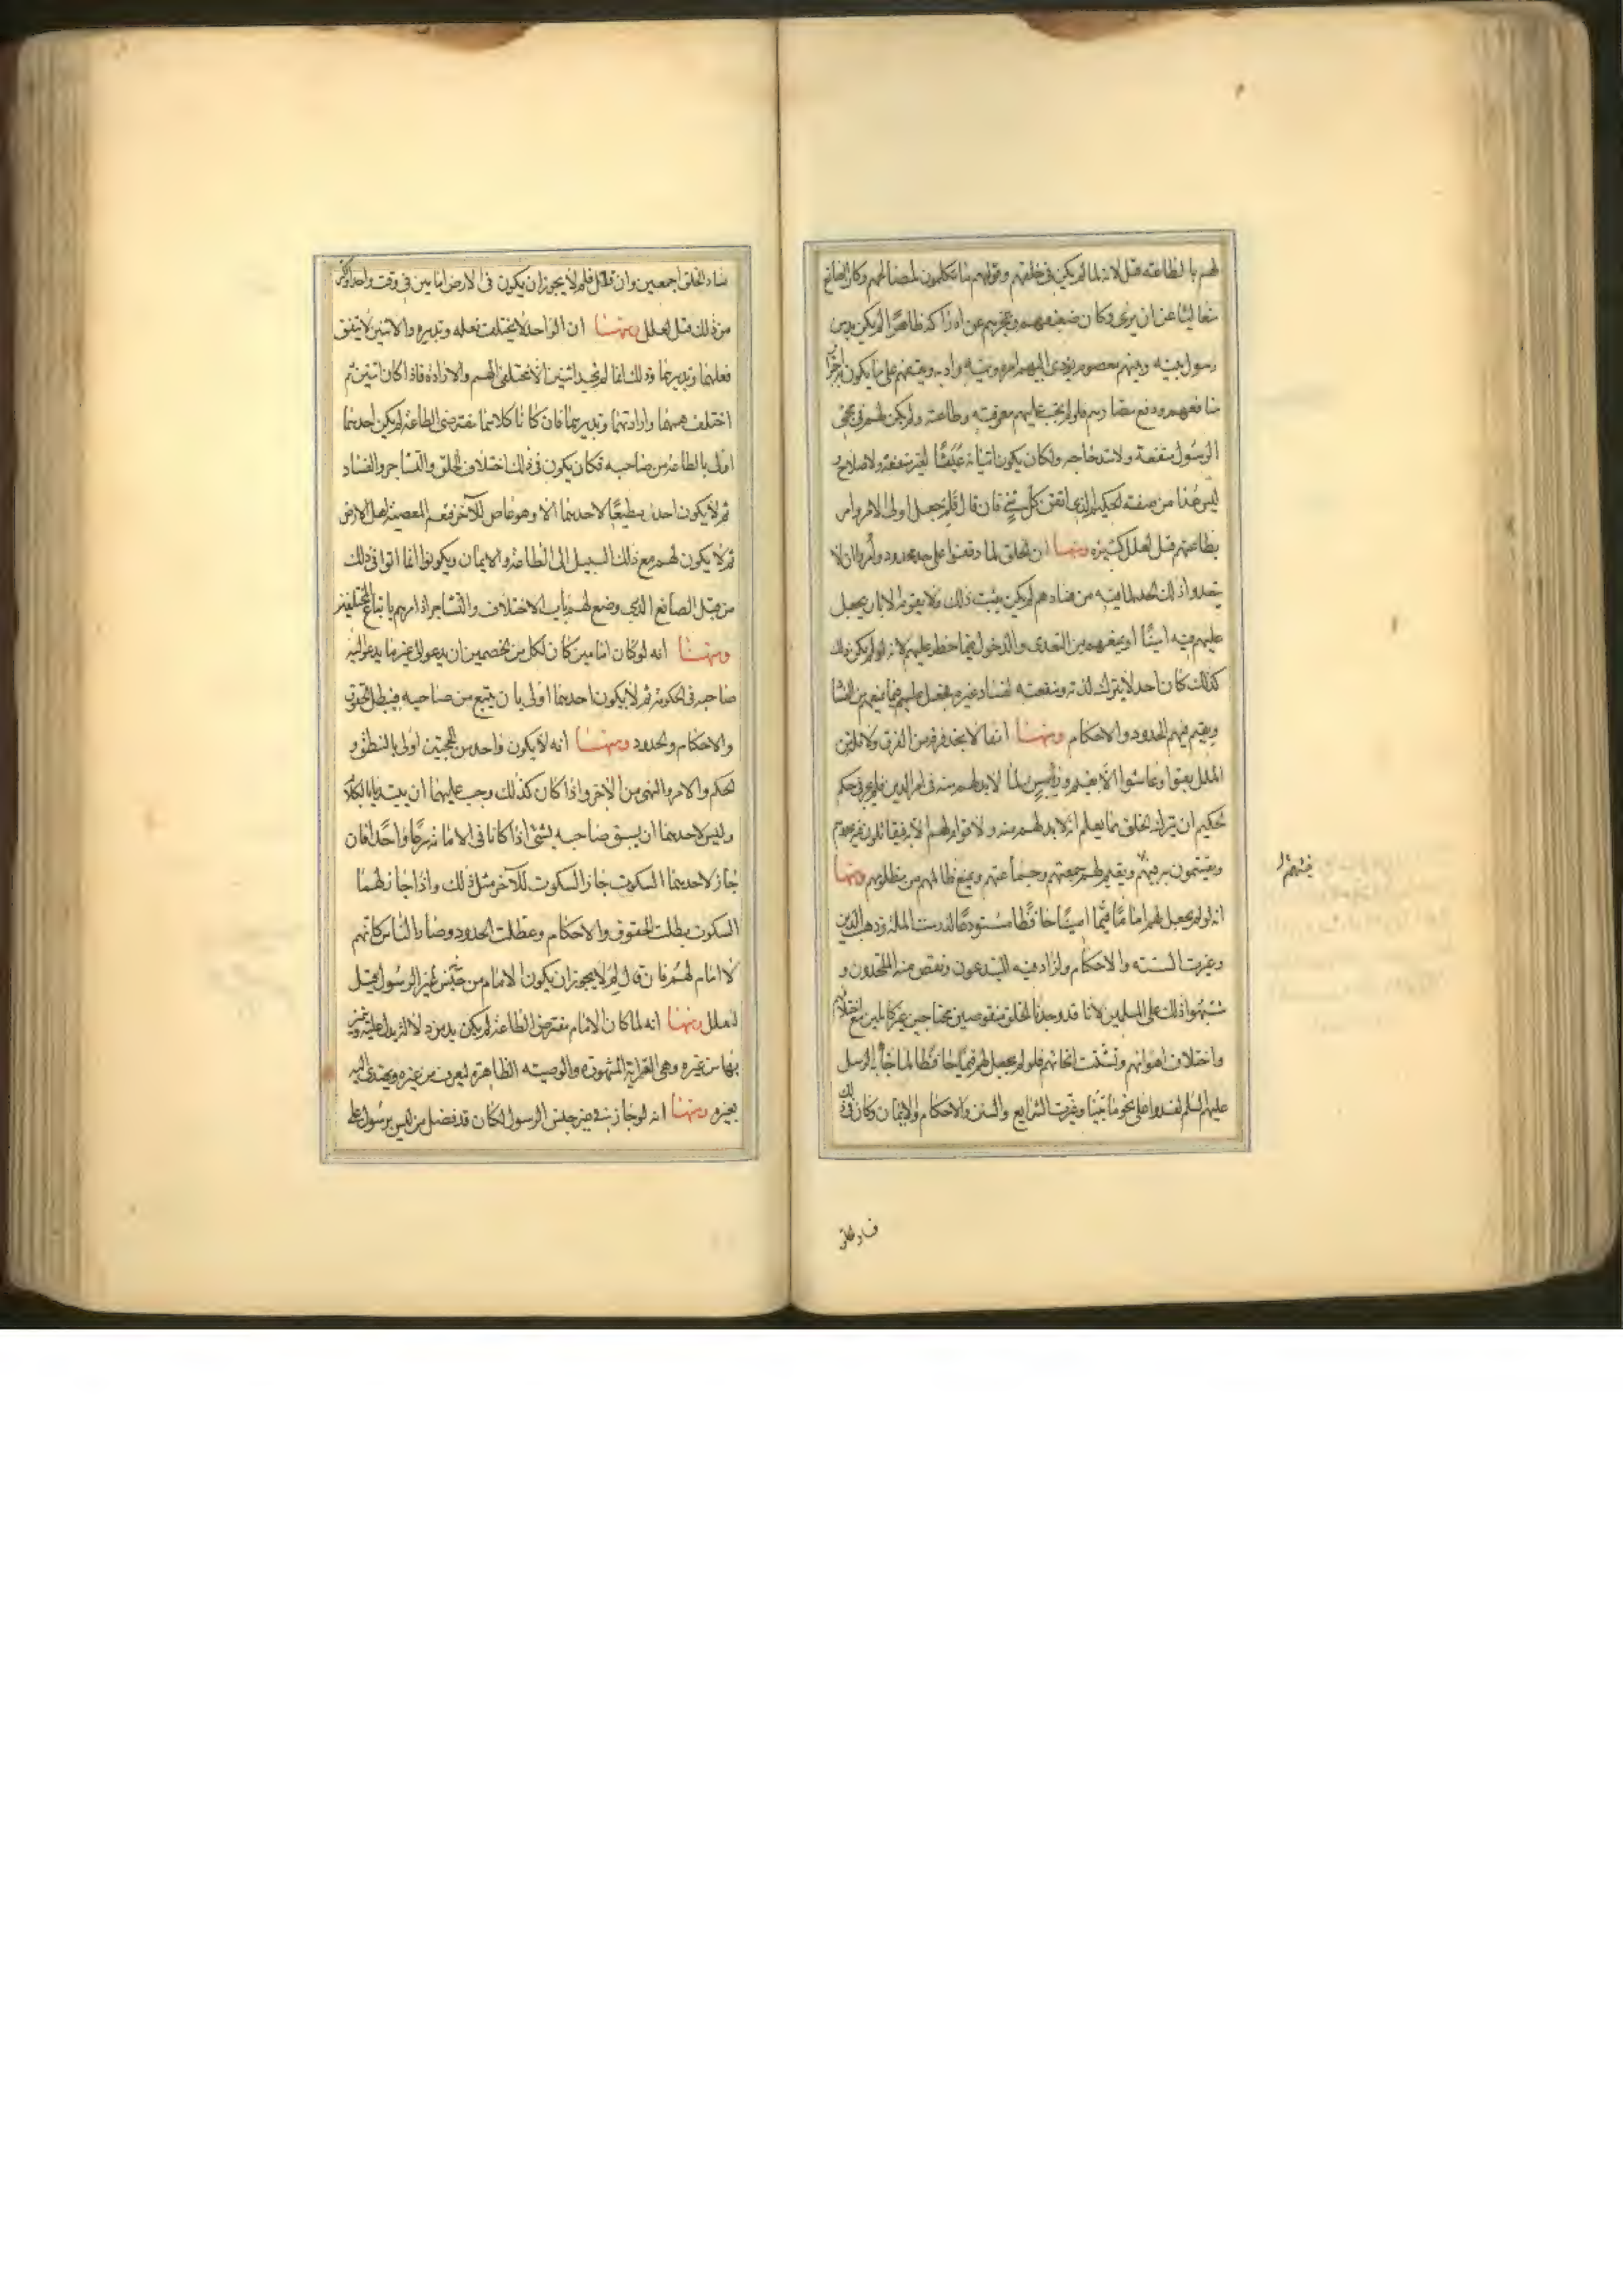 لهم بالطاعة قيل لانه لما لم يكن في خلقهم وقولهم ما يكملون لمصالحهم وكان الصانع
متعاليا عن ان يرى وكان ضعفهم وعجزهم عن ادراكه ظاهرا لم يكن بد من
رسول بينه وبينهم معصوم يؤدي اليهم امره ونهيه وادبه ويقفهم على ما يكون به احراز
منافعهم ودفع مضارهم فلو لم يجب عليهم معرفته وطاعته ولم يكن لهم في مجئ
الرسول منفعة ولا سد حاجة ولكان يكون اتيانه عبثا لغير منفعة ولا صلاح و
ليس هذا من صفة الحكيم الذي اتقن كل شئ فان قال فلم جعل اولى الامر وامر
بطاعتهم قيل لعلل كثيرة ومنها ان الخلق لما وقفوا على حد محدود وأمروا ان لا
يتعدوا ذلك الحد لما فيه من فسادهم لم يكن يثبت ذلك ولا يقوم الا بان يجعل
عليهم فيه امينا يمنعهم من التعدى والدخول فيما حظر عليهم لانه لو لم يكن ذلك
كذلك كان احد لا يترك لذته ومنفعته لفساد غيره فجعل عليهم قيما يمنعهم من الفساد
ويقيم فيهم الحدود والاحكام ومنها انا لا نجد فرقة من الفرق ولا ملة من
الملل بقوا وعاشوا الا بقيم ورئيس لما لا بد لهم منه في امر الدين فلم يجز في حكم
الحكيم ان يترك الخلق مما يعلم انه لا بد لهم منه ولا قوام لهم الا به فيقاتلون به عدوهم
ويقسمون به فيئهم ويقيم لهم جمعتهم وجماعتهم ويمنع ظالمهم من مظلومهم ومنها
انه لو لم يجعل لهم اماما قيما امينا حافظا مستودعا لدرست الملة وذهب الدين
وغيرت السنة والاحكام ولزاد فيه المبتدعون ونقص منه الملحدون و
شبهوا ذلك على المسلمين لانا قد وجدنا الخلق منقوصين محتاجين غير كاملين مع اختلافهم
واختلاف اهوائهم وتشتت انحائهم فلو لم يجعل لهم قيما حافظا لما جاء به الرسل
عليهم السلم لفسدوا على نحو ما بينا وغيرت الشرايع والسنن والاحكام والايمان وكان في ذلك
فيئهم
فساد الخلق
فساد الخلق اجمعين وان قيل فلم لا يجوز ان يكون في الارض امامين في وقت واحد واكثر
من ذلك قيل لعلل ومنها ان الواحد لا يختلف فعله وتدبيره والاثنين لا يتفق
فعلهما وتدبيرهما وذلك انا لم نجد اثنين الا مختلفي الهمم والارادة فاذا كان اثنين ثم
اختلف هممهما وارادتهما وتدبيرهما فان كانا كلاهما مفترضي الطاعة لم يكن احدهما
اولى بالطاعة من صاحبه فكان يكون في ذلك اختلاف الخلق والتشاجر والفساد
ثم لا يكون احد مطيعا لاحدهما الا وهو عاص للآخر فتعم المعصية اهل الارض
ثم لا يكون لهم مع ذلك السبيل الى الطاعة والايمان ويكونوا انما اتوا في ذلك
من قبل الصانع الذي وضع لهم باب الاختلاف والتشاجر اذ امرهم باتباع المختلفين
ومنها انه لو كان امامين كان لكل من الخصمين ان يدعو الى غير ما يدعو اليه
صاحبه في الحكومة ثم لا يكون احدهما اولى بان يتبع من صاحبه فيبطل الحقوق
والاحكام والحدود ومنها انه لا يكون واحد من الحجتين اولى بالنطق و
الحكم والامر والنهي من الاخر واذا كان كذلك وجب عليهما ان يبتديا بالكلام
وليس لاحدهما ان يسبق صاحبه بشئ اذا كانا في الامامة شرعا واحدا فان
جاز لاحدهما السكوت جاز السكوت للآخر مثل ذلك واذا جاز لهما
السكوت بطلت الحقوق والاحكام وعطلت الحدود وصار الناس كانهم
لا امام لهم فان قال لم لا يجوز ان يكون الامام من جنس غير الرسول قيل
لعلل ومنها انه لما كان الامام مفترض الطاعة لم يكن بد من دلالة يدل عليه ويتميز
بها من غيره وهي القرابة المشهورة والوصية الظاهرة ليعرف من غيره ويهتدى اليه
بعينه ومنها انه لو جاز في غير جنس الرسول لكان قد فضل من ليس برسول على